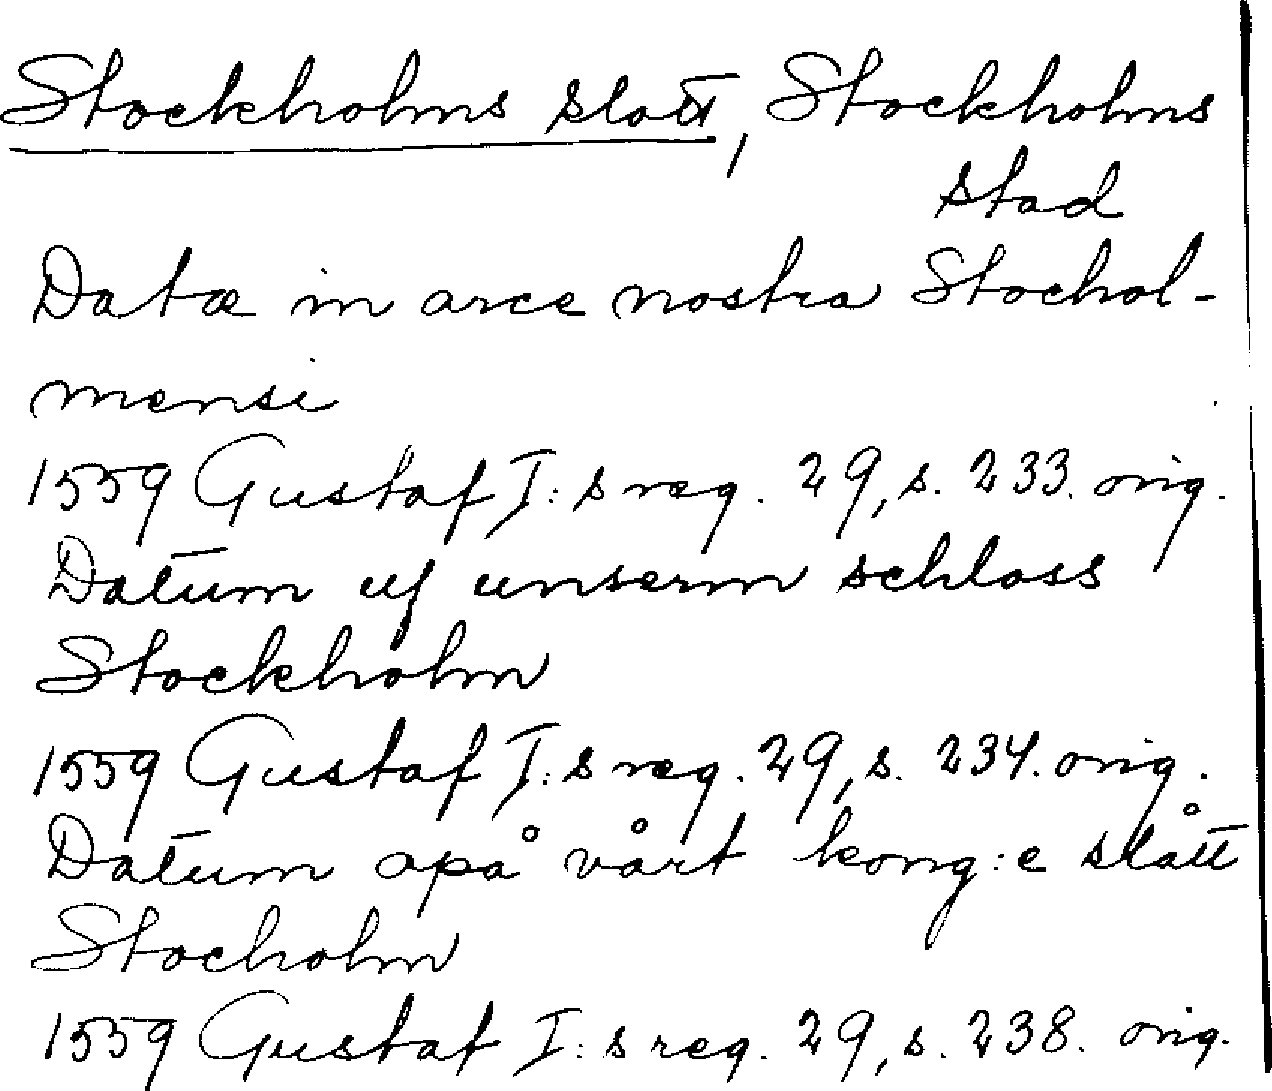 Stockholms slott, Stockholms
stad
Datæ in arce nostra Stochol-
mensi
1559 Gustaf I:s reg. 29, s. 233. orig.
Datum uf unserm schloss
Stockholm
1559 Gustaf I:s reg. 29, s. 234. orig.
Datum opå vårt kong:e slått
Stocholm
1559 Gustaf I:s reg. 29, s. 238. orig.